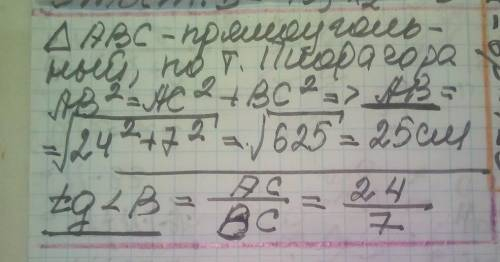 △ABC - прямоуголь-
ный, по т. Пифагора
AB² = AC² + BC² => AB =
= √24² + 7² = √625 = 25 см
tg ∠B = AC/BC = 24/7